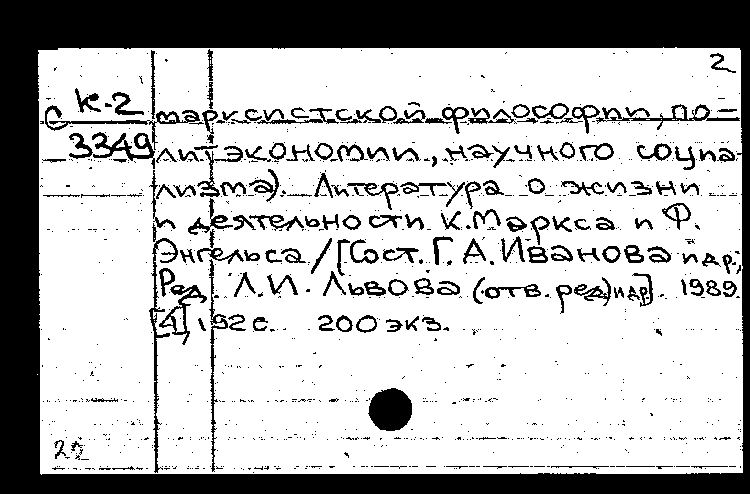 2
С К-2 марксистской философии, по-
3349 литэкономии, научного социа-
лизма). Литература о жизни
и деятельности К. Маркса и Ф.
Энгельса / [Сост. Г. А. Иванова и др.;
Ред. Л. И. Львова (отв. ред) и др]. 1989.
[4], 192 с. 200 экз.
22